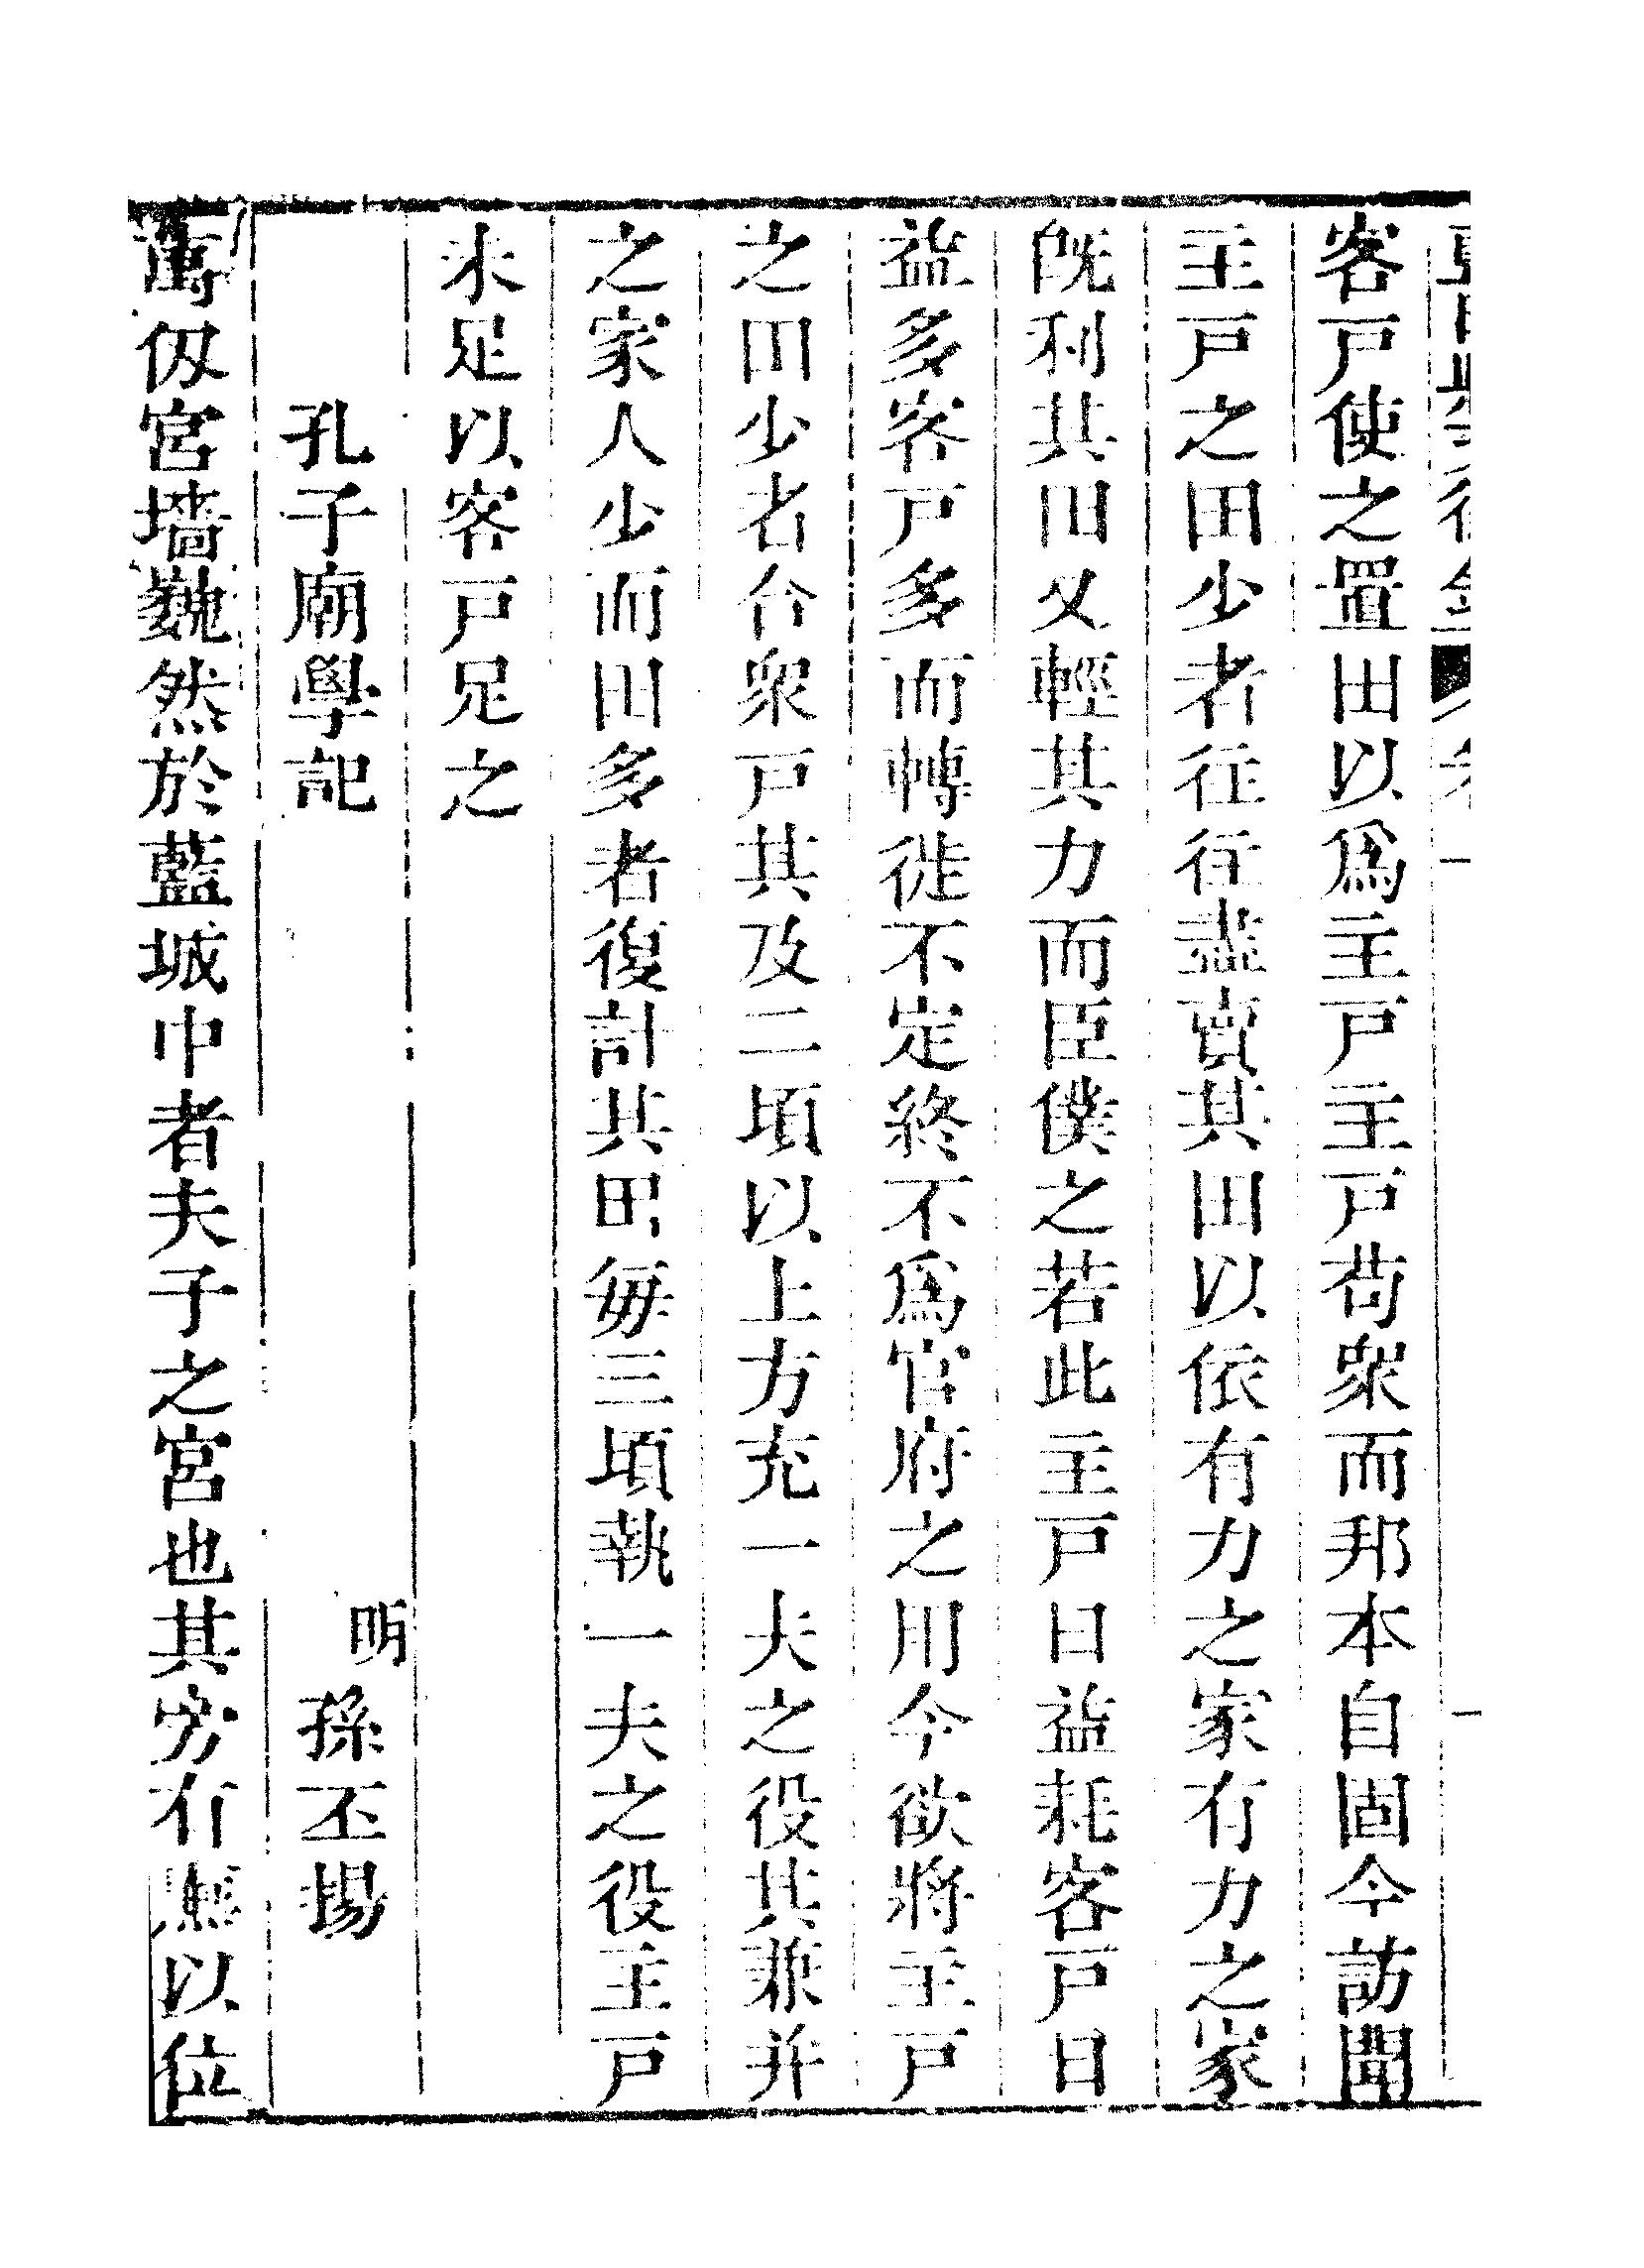 客戸使之置田以爲主戸主戸苟衆而邦本自固今訪聞
主戸之田少者往往盡賣其田以依有力之家有力之家
旣利其田又輕其力而臣僕之若此主戸日益耗客戸日
益多客戸多而轉徙不定終不爲官府之用今欲將主戸
之田少者合衆戸其及二頃以上方充一夫之役其兼并
之家人少而田多者復計其田每三頃執一夫之役主戸
未足以客戸足之
孔子廟學記
明
孫丕揚
萬仭宮墻巍然於藍城中者夫子之宮也其旁有以位